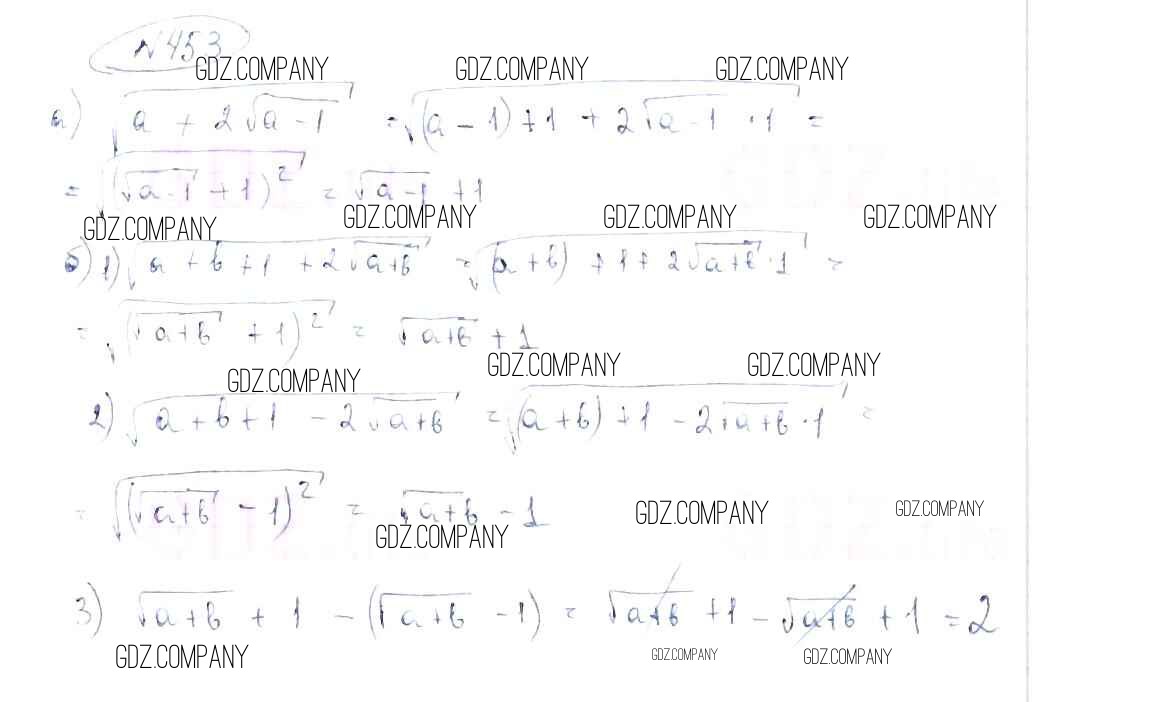 №453
GDZ.COMPANY GDZ.COMPANY GDZ.COMPANY
а) √(a + 2√(a - 1)) = √((a - 1) + 1 + 2√(a - 1) · 1) =
= √((√(a - 1) + 1)²) = √(a - 1) + 1
GDZ.COMPANY GDZ.COMPANY GDZ.COMPANY GDZ.COMPANY
б) 1) √(a + b + 1 + 2√(a+b)) = √((a + b) + 1 + 2√(a+b) · 1) =
= √((√(a+b) + 1)²) = √(a+b) + 1
GDZ.COMPANY GDZ.COMPANY GDZ.COMPANY
2) √(a + b + 1 - 2√(a+b)) = √((a + b) + 1 - 2√(a+b) · 1) =
= √((√(a+b) - 1)²) = √(a+b) - 1
GDZ.COMPANY GDZ.COMPANY GDZ.COMPANY
3) √(a+b) + 1 - (√(a+b) - 1) = √(a+b) + 1 - √(a+b) + 1 = 2
GDZ.COMPANY GDZ.COMPANY GDZ.COMPANY